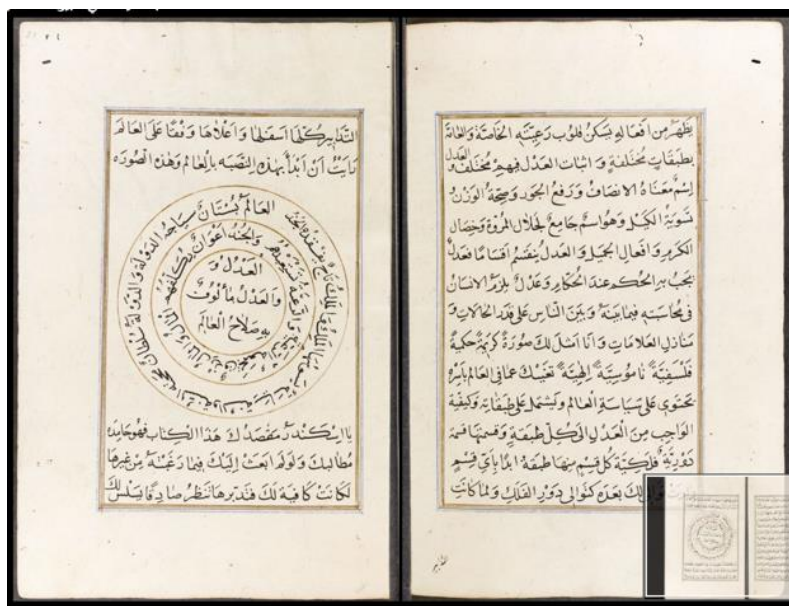 يظهر من افعاله يسكن قلوب رعيته الخاصة والعامة
بطبقات مختلفة و اثبات العدل فيهم مختلف و العدل
اسم معناه الانصاف ورفع الجور وصحة الوزن و
تسوية الكيل وهو اسم جامع لجلال المروة وخصال
الكرم وافعال الجميل والعدل ينقسم اقساما فعدل
يجب به الحكم عند الحكام وعدل يلزم الانسان
في محاسبته فيما بينه وبين الناس على قدر الحالات و
منازل العلامات وانا امثل لك صورة كريمة حكمية
فلسفية ناموسية الهية تغنيك عما في العالم باسره
تحتوي على سياسة العالم ويشتمل على طبقاته وكيفية
الواجب من العدل الى كل طبقة وقسمتها قسمة
دورية فلكية كل قسم منها طبقة ابدا باي قسم
لك بعده كتوالي دور الفلك ولما كانت
التدابير كلها اسفلها واعلاها وقفا على العالم
رايت ان ابدأ بهذه النصبه بالعالم وهذه الصوره
العالم بستان سياجه الدولة والدولة سلطان
والجند اعوان يكفلهم المال والمال رزق
العدل و
والعدل مالوف
به صلاح العالم
يا اسكندر مقصدك هذا الكتاب فهو جامد
مطالبك ولو لم ابعث اليك فيما رغبته من غيرها
لكانت كافية لك فتدبرها نظر صادقا يسلس لك